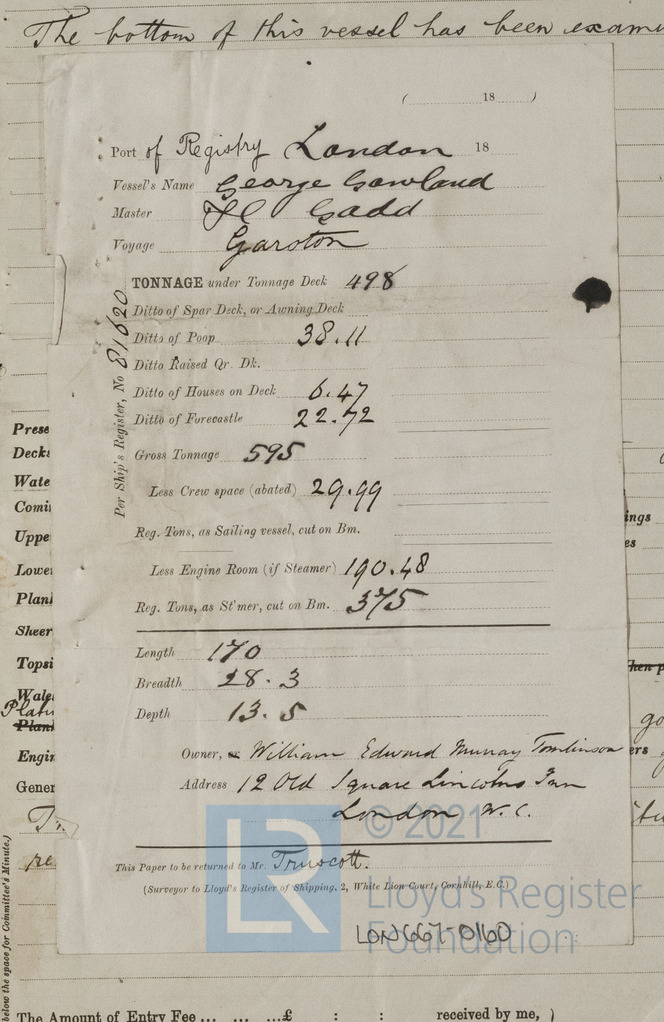 The bottom of this vessel has been exami
( 18 )
Port of Registry London 18
Vessel's Name George Gowland
Master Gadd
Voyage Garston
Per Ship's Register, No 81620
TONNAGE under Tonnage Deck 498
Ditto of Spar Deck, or Awning Deck
Ditto of Poop 38.11
Ditto Raised Qr. Dk.
Ditto of Houses on Deck 6.47
Ditto of Forecastle 22.72
Gross Tonnage 595
Less Crew space (abated) 29.99
Reg. Tons, as Sailing vessel, cut on Bm.
Less Engine Room (if Steamer) 190.48
Reg. Tons, as St'mer, cut on Bm. 375
Length 170
Breadth 28.3
Depth 13.5
Owner, or William Edward Murray Tomlinson
Address 12 Old Square Lincolns Inn
London W.C.
This Paper to be returned to Mr. Truscott.
(Surveyor to Lloyd's Register of Shipping, 2, White Lion Court, Cornhill, E.C.)
LON667-0160
© 2021
LR
Lloyd's Register
Foundation
Prese
Decks
Wate
Comi
Uppe
Lowe
Plank
Sheer
Topsi
Wales
Plank
Engin
Gener
re
ings
es
hen p
go
ers
below the space for Committee's Minute.)
The Amount of Entry Fee ... ... ...£ : : received by me, )